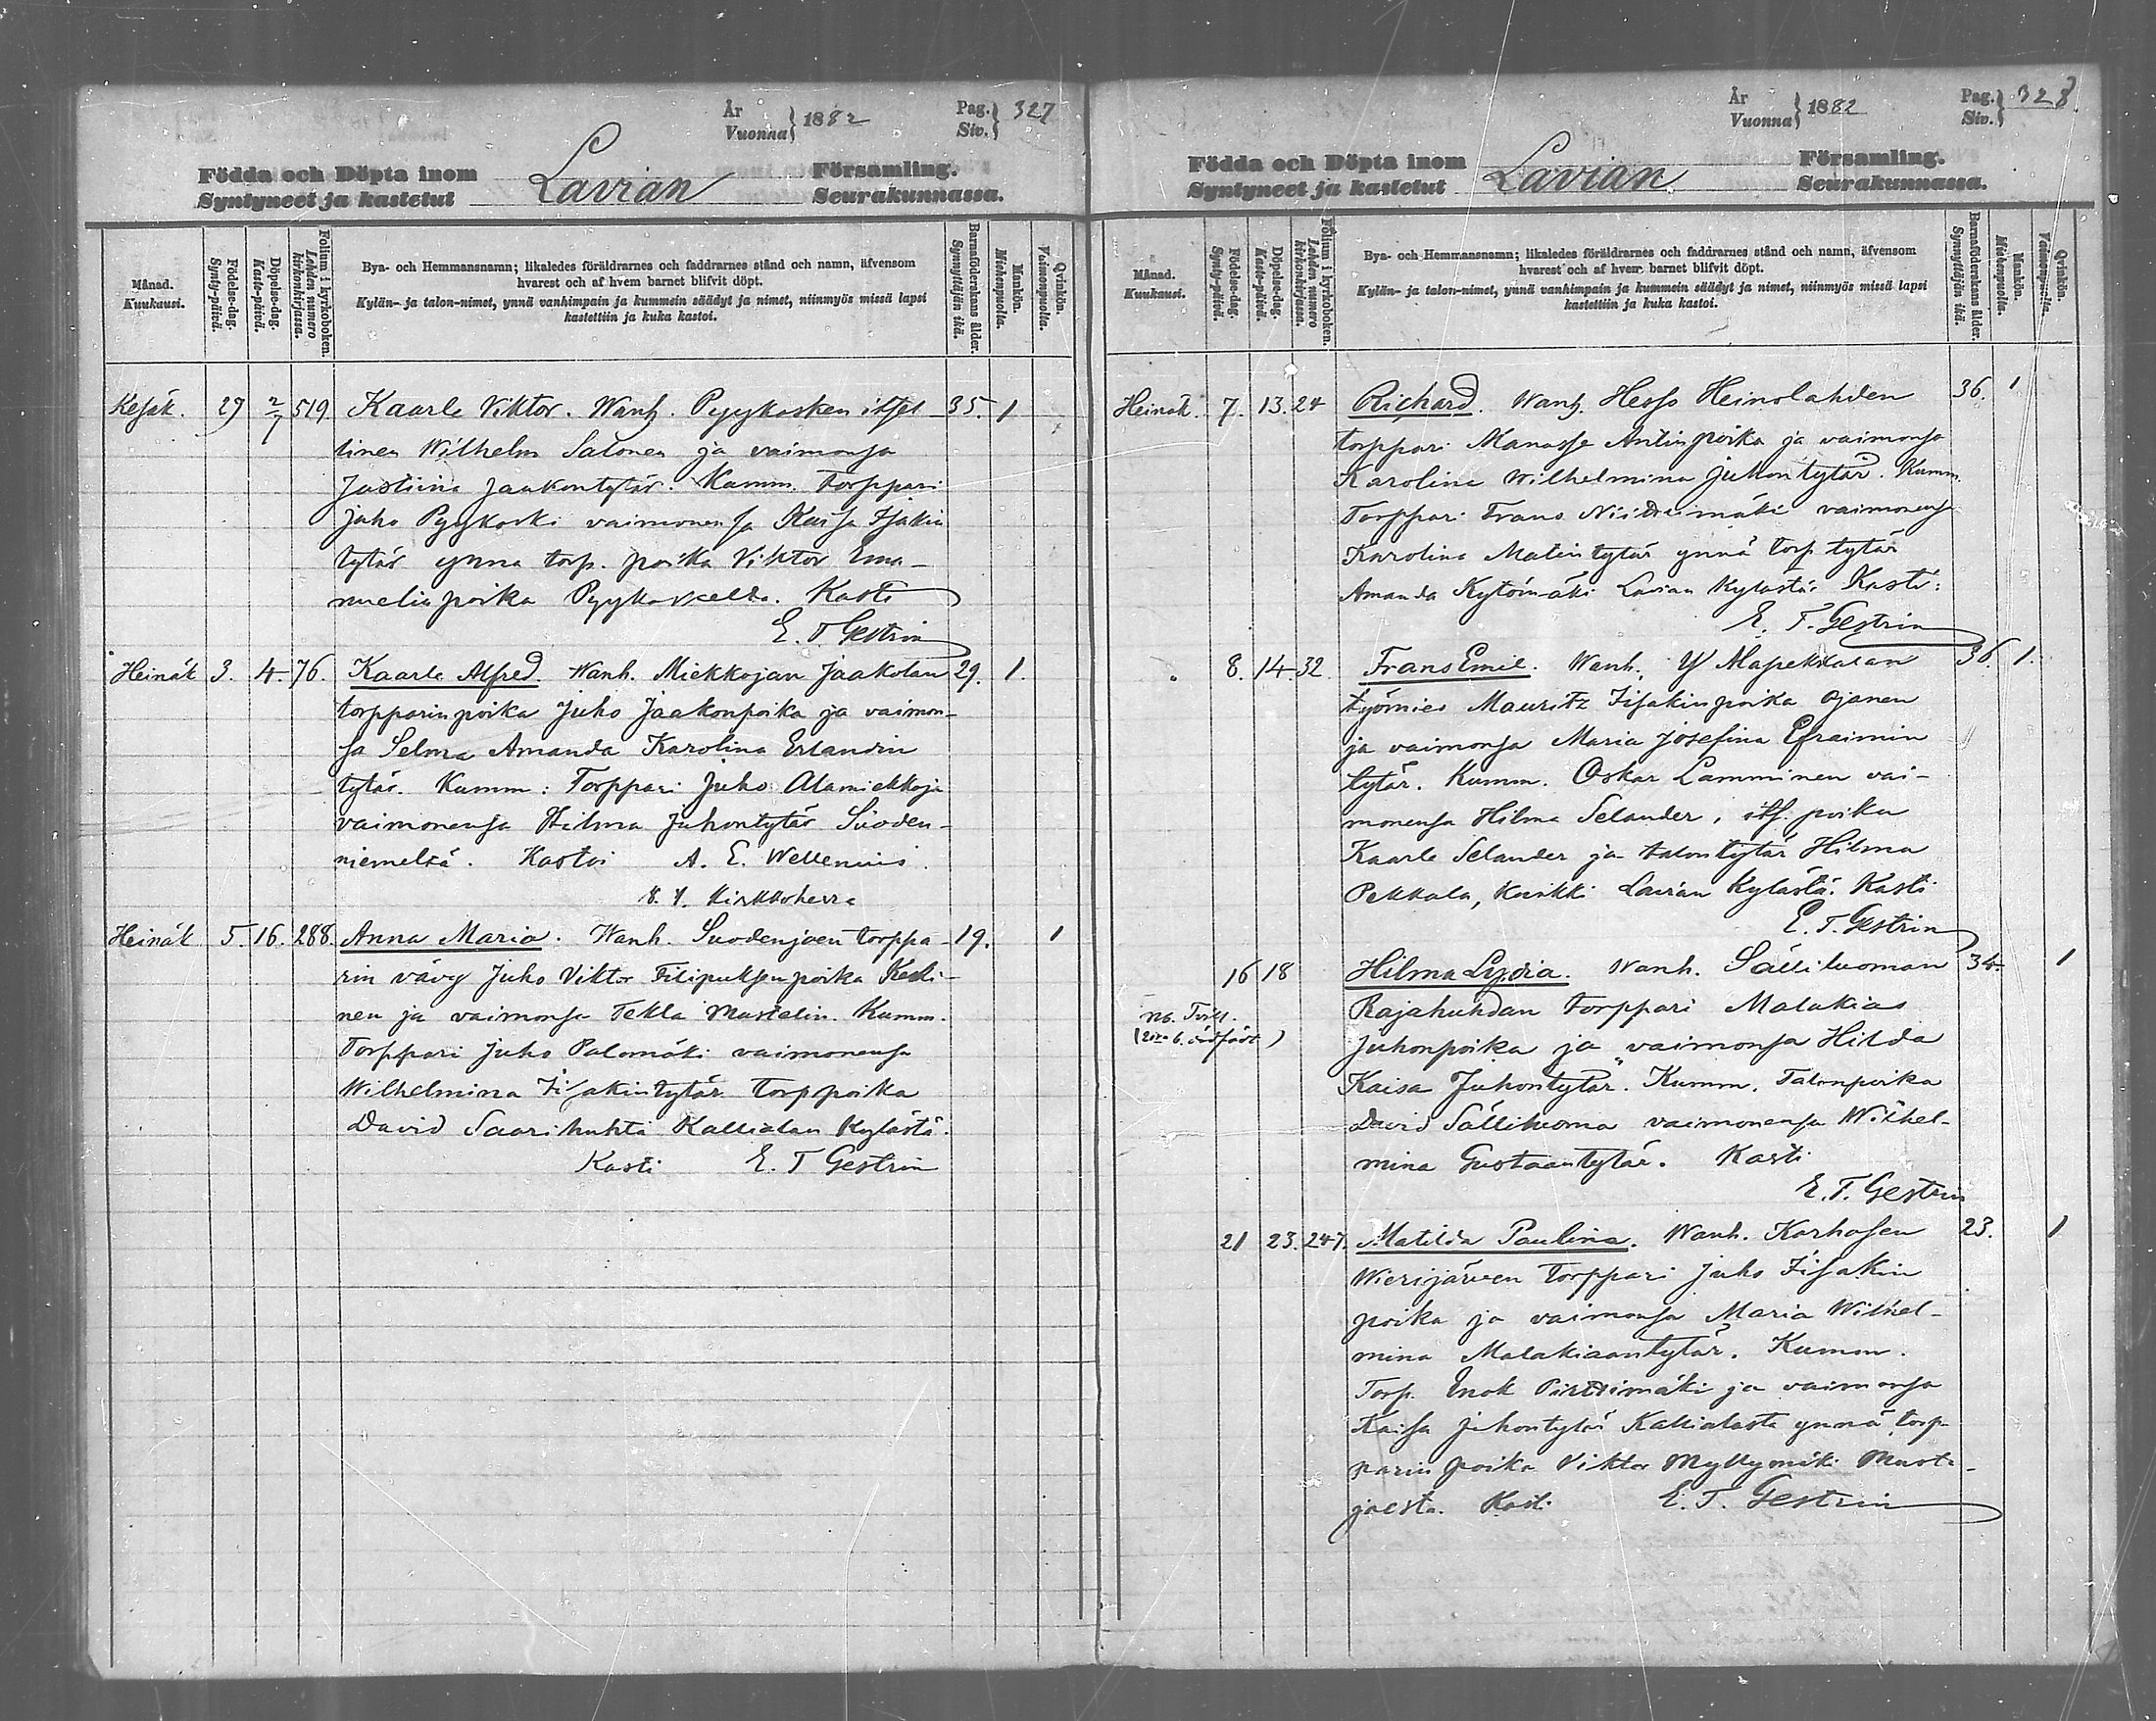 År
Vuonna} 1882
Pag.
Siv.} 327
Födda och Döpta inom
Syntyneet ja kastetut
Lavian
Församling.
Seurakunnassa.
Månad.
Kuukausi.
Födelse-dag.
Synty-päivä.
Döpelse-dag.
Kaste-päivä.
Folium i kyrkoboken.
Lehden numero kirkonkirjassa.
Bya- och Hemmansnamn; likaledes föräldrarnes och faddrarnes stånd och namn, äfvensom
hvarest och af hvem barnet blifvit döpt.
Kylän- ja talon-nimet, ynnä vanhimpain ja kummein säädyt ja nimet, niinmyös missä lapsi
kastettiin ja kuka kastoi.
Barnaföderskans ålder.
Synnyttäjän ikä.
Mankön.
Miehenpuolta.
Qvinkön.
Vaimonpuolta.
Kesäk. 29 2/7 519. Kaarle Viktor. Wanh. Pyykosken itsel 35. 1
linen Wilhelm Salonen ja vaimonsa
Justiina Jaakontytär. Kumm. Torppari
Juho Pyykoski vaimonensa Kaisa Isakin
tytär ynnä torp. poika Viktor Ema-
nuelin poika Pyykoskelta. Kasti
E. T Gestrin
Heinäk 3. 4. 76. Kaarle Alfred. Wanh. Miekkojan Jaakolan 29. 1.
torpparinpoika Juho Jaakonpoika ja vaimon-
sa Selma Amanda Karolina Erlandin
tytär. Kumm: Torppari Juho Alamiekkoja
vaimonensa Hilma Juhontytär Suoden-
niemeltä. Kastoi A. E. Wellenius.
v. t. kirkkoherra
Heinäk 5. 16. 288. Anna Maria. Wanh. Suodenjoen torppa- 19. 1
rin vävy Juho Viktor Filipuksenpoika Keski-
nen ja vaimonsa Tekla Mustelin. Kumm.
Torppari Juho Palomäki vaimonensa
Wilhelmina Iisakintytär torppoika
David Saarihuhta Kallialan Kylästä.
Kasti E. T Gestrin
År
Vuonna} 1882
Pag.
Siv.} 328.
Födda och Döpta inom
Syntyneet ja kastetut
Lavian
Församling.
Seurakunnassa.
Månad.
Kuukausi.
Födelse-dag.
Synty-päivä.
Döpelse-dag.
Kaste-päivä.
Folium i kyrkoboken.
Lehden numero kirkonkirjassa.
Bya- och Hemmansnamn; likaledes föräldrarnes och faddrarnes stånd och namn, äfvensom
hvarest och af hvem barnet blifvit döpt.
Kylän- ja talon-nimet, ynnä vanhimpain ja kummein säädyt ja nimet, niinmyös missä lapsi
kastettiin ja kuka kastoi.
Barnaföderskans ålder.
Synnyttäjän ikä.
Mankön.
Miehenpuolta.
Qvinkön.
Vaimonpuolta.
Heinäk. 7. 13. 24 Richard. Wanh. Hesso Heinolahden 36. 1
torppari Manasse Antinpoika ja vaimonsa
Karolina Wilhelmina Juhontytär. Kumm.
Torppari Frans Niidrimäki vaimonensa
Karolina Matintytär ynnä torp tytär
Amanda Kytömäki Lavian Kylästä. Kasti:
E. T. Gestrin
8. 14. 32. Frans Emil. Wanh. Y Marekkalan 36. 1.
työmies Mauritz Iisakinpoika Ojanen
ja vaimonsa Maria Josefina Efraimin
tytär. Kumm. Oskar Lamminen vai-
monensa Hilma Selander, its. poika
Kaarle Selander ja talontytär Hilma
Pekkala, Kaikki Lavian Kylästä. Kasti
E. T. Gestrin
16 18 Hilma Lydia. Wanh. Sälliluoman 34. 1
NB. Tvill.
Rajahuhdan torppari Malakias
Juhonpoika ja vaimonsa Hilda
Kaisa Juhontytär. Kumm. Talonpoika
David Sälliluoma vaimonensa Wilhel-
mina Gustaantytär. Kasti
E. T. Gestrin
21 23. 247. Matilda Paulina. Wanh. Karhosen 23. 1
Wierijärven Torppari Juho Iisakin
poika ja vaimonsa Maria Wilhel-
mina Malakiaantytär. Kumm.
Torp. Enok Pirttimäki ja vaimonsa
Kaisa Juhontytär Kallialasta ynnä torp
parin poika Viktor Myllymäki Musta-
joesta. Kasti E. T. Gestrin